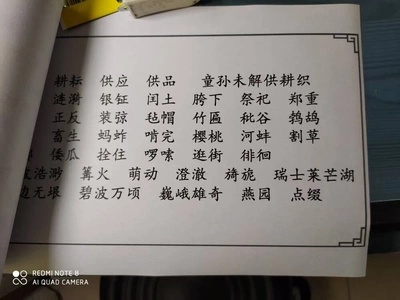 耕耘 供应 供品 童孙未解供耕织
涟漪 银钲 闰土 胯下 祭祀 郑重
正反 装弶 毡帽 竹匾 秕谷 鹁鸪
畜生 蚂蚱 啃完 樱桃 河蚌 割草
倭瓜 拴住 啰嗦 逛街 徘徊
浩渺 篝火 萌动 澄澈 旖旎 瑞士莱芒湖
边无垠 碧波万顷 巍峨雄奇 燕园 点缀
REDMI NOTE 8
AI QUAD CAMERA